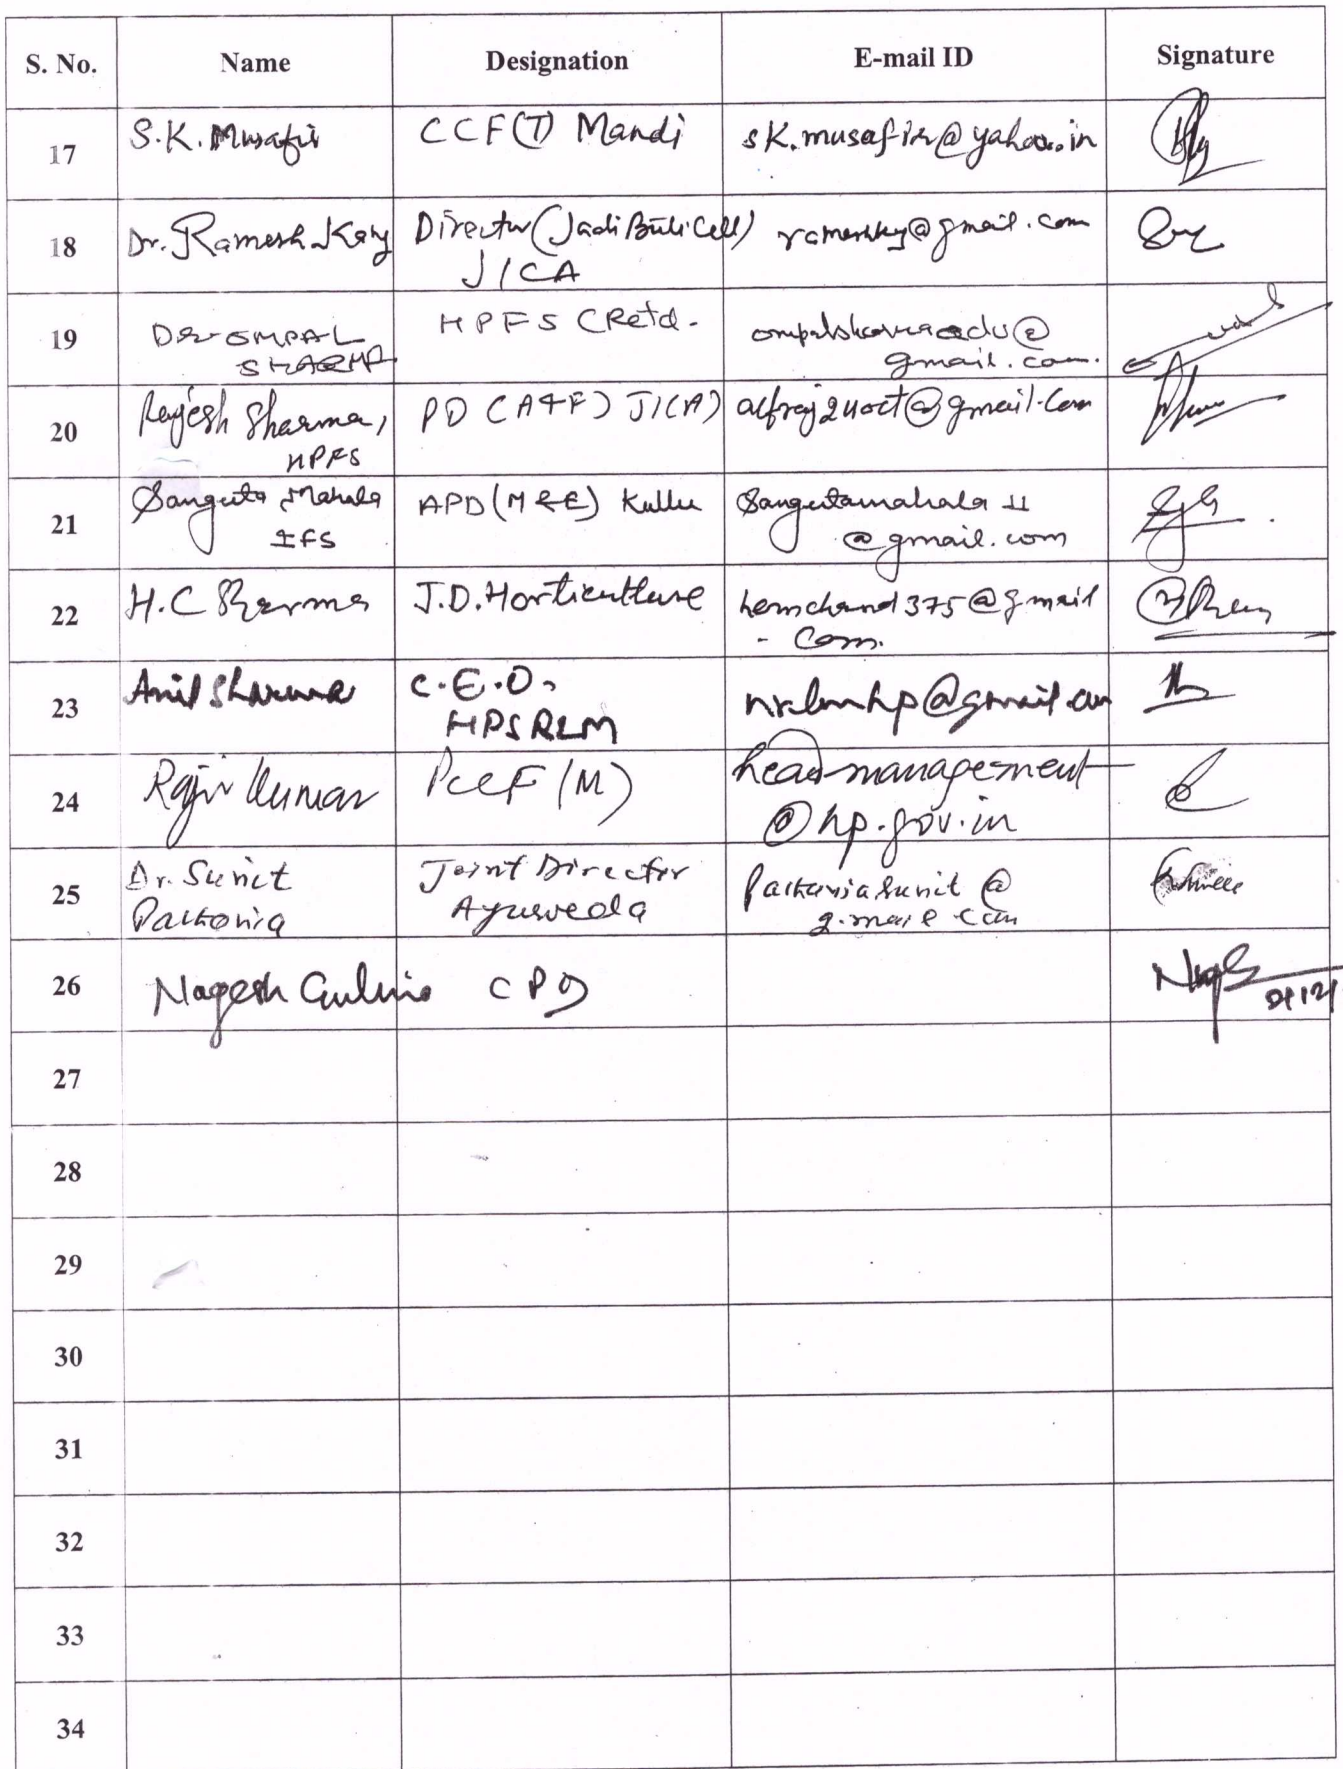 S. No. Name Designation E-mail ID Signature
17 S.K. Musafir CCF(T) Mandi sk.musafir@yahoo.in
18 Dr. Ramesh Kang Director (Jadi Buti Cell)
JICA
19 DR OMPAL HPFS (Retd. ompalsharmaedu@
SHARMA gmail.com.
20 Rajesh Sharma, PD (A&F) JICA) alfraj24oct@gmail.com
HPFS
21 Sangeeta Mahala APD (M&E) Kullu Sangeetamahala 11
IFS @gmail.com
22 H.C Sharma J.D. Horticulture hemchand375@gmail
. Com.
23 Anil Sharma C.E.O. nrlmhp@gmail.com
HPSRLM
24 Rajiv Kumar PCCF (M) head-management
@hp.gov.in
25 Dr. Sunit Joint Director @
Ayurveda
26 Nagesh CPD
27
28
29
30
31
32
33
34